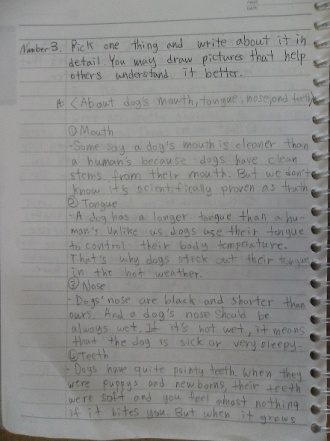 Number 3. Pick one thing and write about it in
detail. You may draw pictures that help
others understand it better.
A: <About dog's mouth, tongue, nose, and teeth>
① Mouth
- Some say a dog's mouth is cleaner than
a human's because dogs have clean
stems from their mouth. But we don't
know it's scientifically proven as truth
② Tongue
- A dog has a longer tongue than a hu-
man's. Unlike us, dogs use their tongue
to control their body temprature.
That's why dogs stick out their tongue
in the hot weather.
③ Nose
- Dogs' nose are black and shorter than
ours. And a dog's nose should be
always wet. If it's not wet, it means
that the dog is sick or very sleepy.
④ Teeth
- Dogs have quite pointy teeth. When they
were puppys and newborns, their teeth
were soft and you feel almost nothing
if it bites you. But when it grows